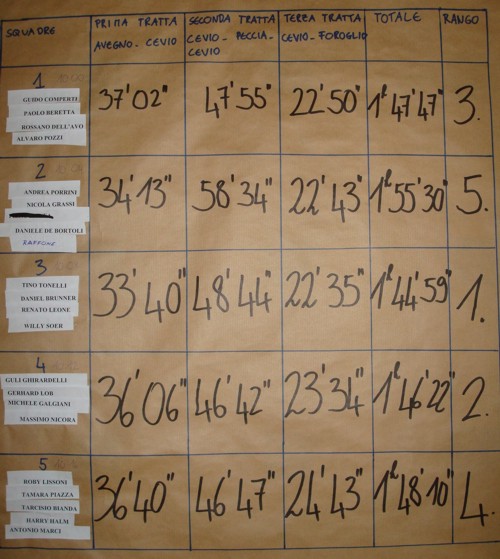 SQUADRE
PRIMA TRATTA
AVEGNO - CEVIO
SECONDA TRATTA
CEVIO - PECCIA -
CEVIO
TERZA TRATTA
CEVIO - FOROGLIO
TOTALE
RANGO
1
GUIDO COMPERTI
PAOLO BERETTA
ROSSANO DELL'AVO
ALVARO POZZI
37'02"
47'55"
22'50"
1h47'47"
3.
2
ANDREA PORRINI
NICOLA GRASSI
DANIELE DE BORTOLI
RAFFONE
34'13"
58'34"
22'43"
1h55'30"
5.
3
TINO TONELLI
DANIEL BRUNNER
RENATO LEONE
WILLY SOER
33'40"
48'44"
22'35"
1h44'59"
1.
4
GULI GHIRARDELLI
GERHARD LOB
MICHELE GALGIANI
MASSIMO NICORA
36'06"
46'42"
23'34"
1h46'22"
2.
5
ROBY LISSONI
TAMARA PIAZZA
TARCISIO BIANDA
HARRY HALM
ANTONIO MARCI
36'40"
46'47"
24'43"
1h48'10"
4.